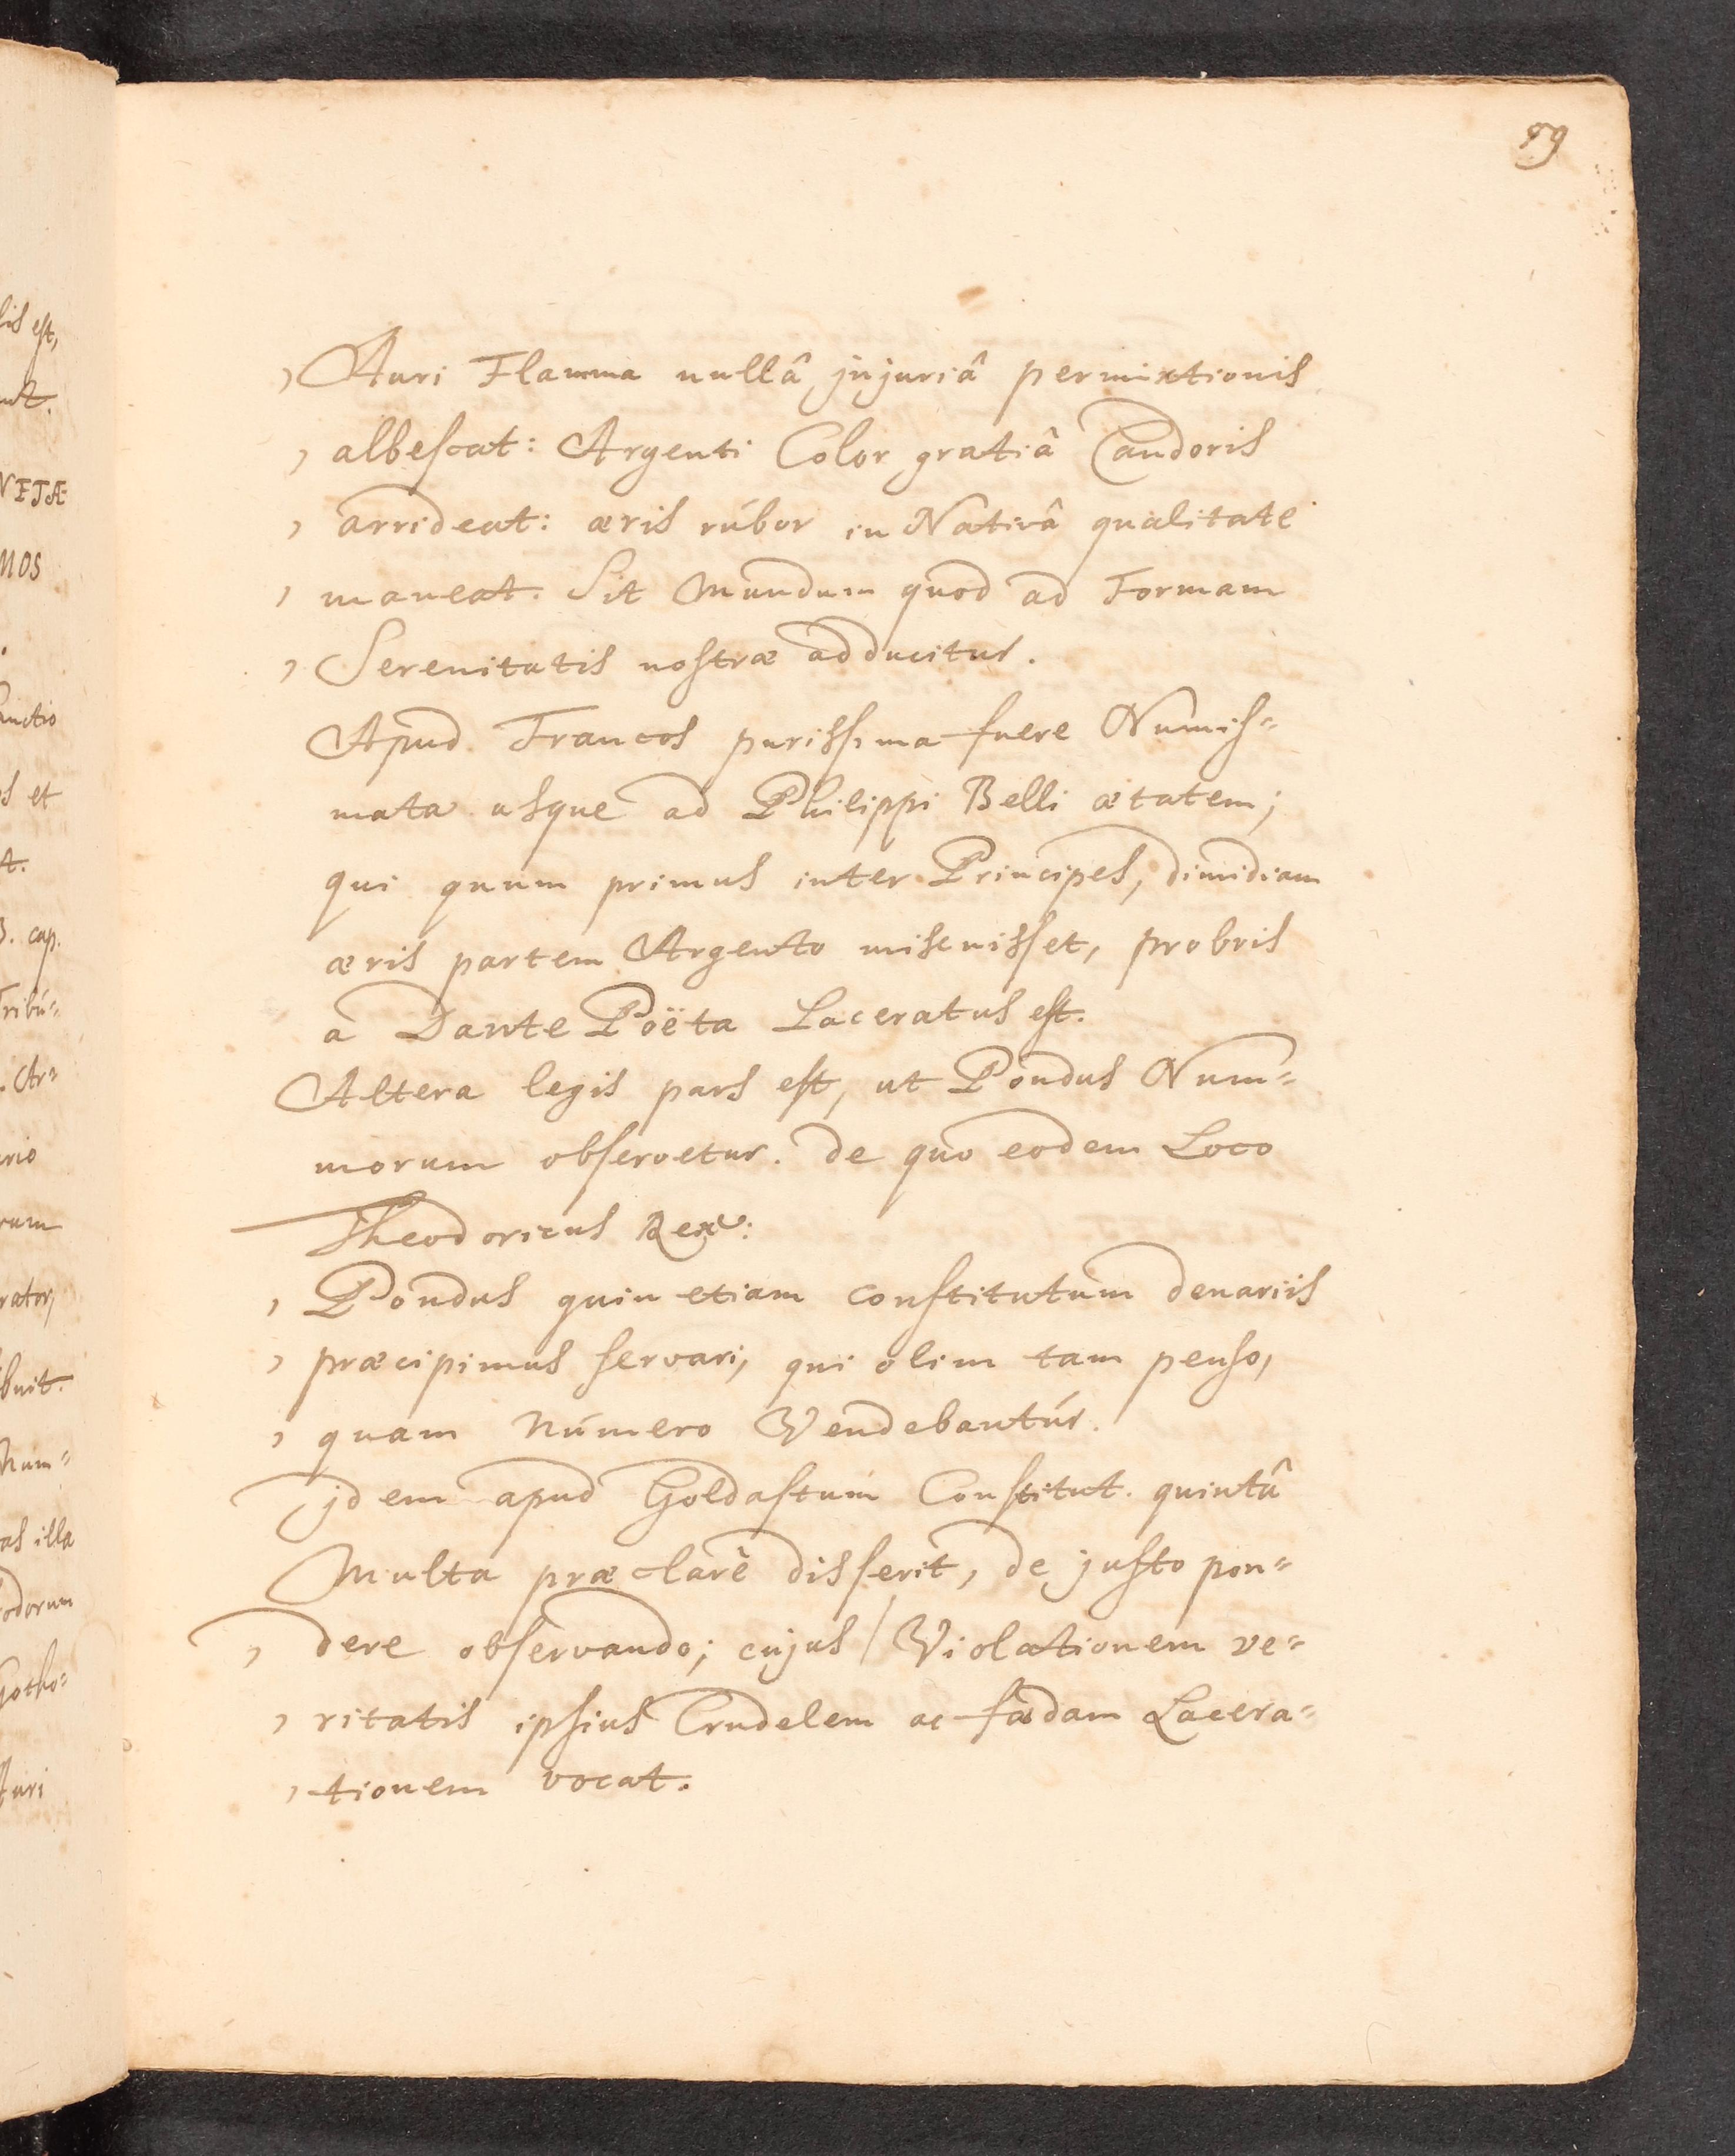 59
, Auri Flamma nullâ jnjuriâ permixtionis
, albeſcat: Argenti Color gratiâ Candoris
, arrideat: æris rúbor in Nativâ qualitate
, maneat. Sit Mundum quod ad Formam
, Serenitatis noſtræ adducitur.
Apud Francos purisſima fuere Numiſ=
mata usque ad Philippi Belli ætatem;
qui quum primus inter Principes, dimidiam
æris partem Argento miscuisſet, probris
a Dante Poëta Laceratus eſt.
Altera legis pars eſt, ut Pondus Num=
morum obſervetur. De quo eodem Loco
Theodoricus Rex:
, Pondus quin etiam conſtitutum denariis
, præcipimus ſervari, qui olim tam penſo,
, quam número Vendebantúr.
jdem apud Goldaſtum Conſtitut. quintâ
Multa præclarè disſerit, de juſto pon=
, dere obſervando; cujus / Violationem ve=
, ritatis ipſius Crudelem ac fœdam Lacera=
, tionem vocat.
lis eſt,
NETÆ
MOS
s et
3. cap.
Tribú=
Num=
as illa
Gotho=
Auri